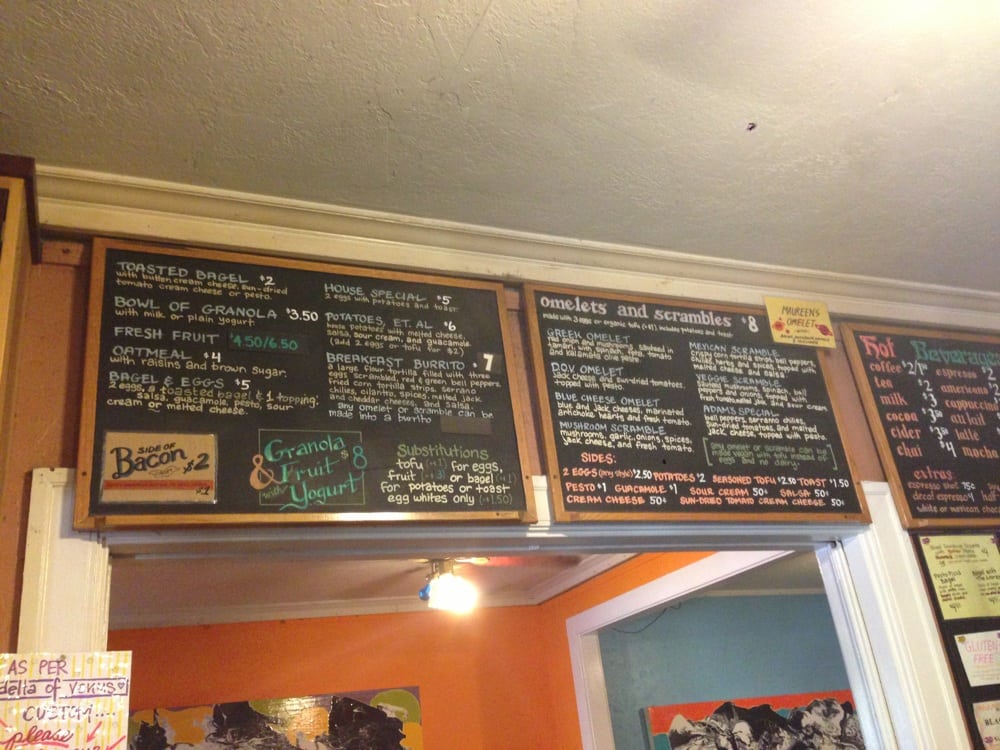 TOASTED BAGEL $2
with butter, cream cheese, sun-dried
tomato cream cheese or pesto.
BOWL OF GRANOLA $3.50
with milk or plain yogurt
FRESH FRUIT $4.50/6.50
OATMEAL $4
with raisins and brown sugar.
BAGEL & EGGS $5
2 eggs, a toasted bagel & 1 topping;
salsa, guacamole, pesto, sour
cream or melted cheese.
SIDE OF
Bacon $2
HOUSE SPECIAL $5
2 eggs with potatoes and toast
POTATOES, ET. AL $6
house potatoes with melted cheese,
salsa, sour cream, and guacamole.
(add 2 eggs or tofu for $2)
BREAKFAST BURRITO $7
a large flour tortilla filled with three
eggs scrambled, red & green bell peppers,
fried corn tortilla strips, serrano
chilies, cilantro, spices, melted jack
and cheddar cheeses, and salsa.
any omelet or scramble can be
made into a burrito
Granola
& Fruit $8
with Yogurt
Substitutions
tofu (+1) for eggs,
fruit or bagel (+1)
for potatoes or toast
egg whites only (+1.50)
omelets and scrambles $8
made with 3 eggs or organic tofu (+$1), includes potatoes and toast
MAUREEN'S
OMELET
GREEK OMELET
red onion and mushrooms, sauteed in
tamari, with spinach, feta, tomato
and kalamata olive paste.
D.O.V. OMELET
jack cheese and sun-dried tomatoes,
topped with pesto.
BLUE CHEESE OMELET
blue and jack cheeses, marinated
artichoke hearts and fresh tomato.
MUSHROOM SCRAMBLE
mushrooms, garlic, onions, spices,
jack cheese, and fresh tomato.
MEXICAN SCRAMBLE
crispy corn tortilla strips, bell peppers,
chilies, herbs and spices, topped with
melted cheese and salsa
VEGGIE SCRAMBLE
sauteed mushrooms, spinach, bell
peppers and onions, topped with
fresh tomatoes, melted jack and sour cream
ADAM'S SPECIAL
bell peppers, serrano chilies,
sun-dried tomatoes, and melted
jack cheese, topped with pesto.
any omelet or scramble can be
made vegan with tofu instead of
eggs and no dairy.
SIDES:
2 EGGS (any style) $2.50 POTATOES $2 SEASONED TOFU $2.50 TOAST $1.50
PESTO $1 GUACAMOLE $1 SOUR CREAM 50¢ SALSA 50¢
CREAM CHEESE 50¢ SUN-DRIED TOMATO CREAM CHEESE 50¢
Hot Beverage
coffee
tea $2
milk $3
cocoa
cider $3
chai $4
espresso
americano
cappuccino
au lait
latte
mocha
extras
espresso shot 75¢
decaf espresso
white or mexican choco
GLUTEN
FREE
AS PER
delia of VENUS
CUSTOM....
please